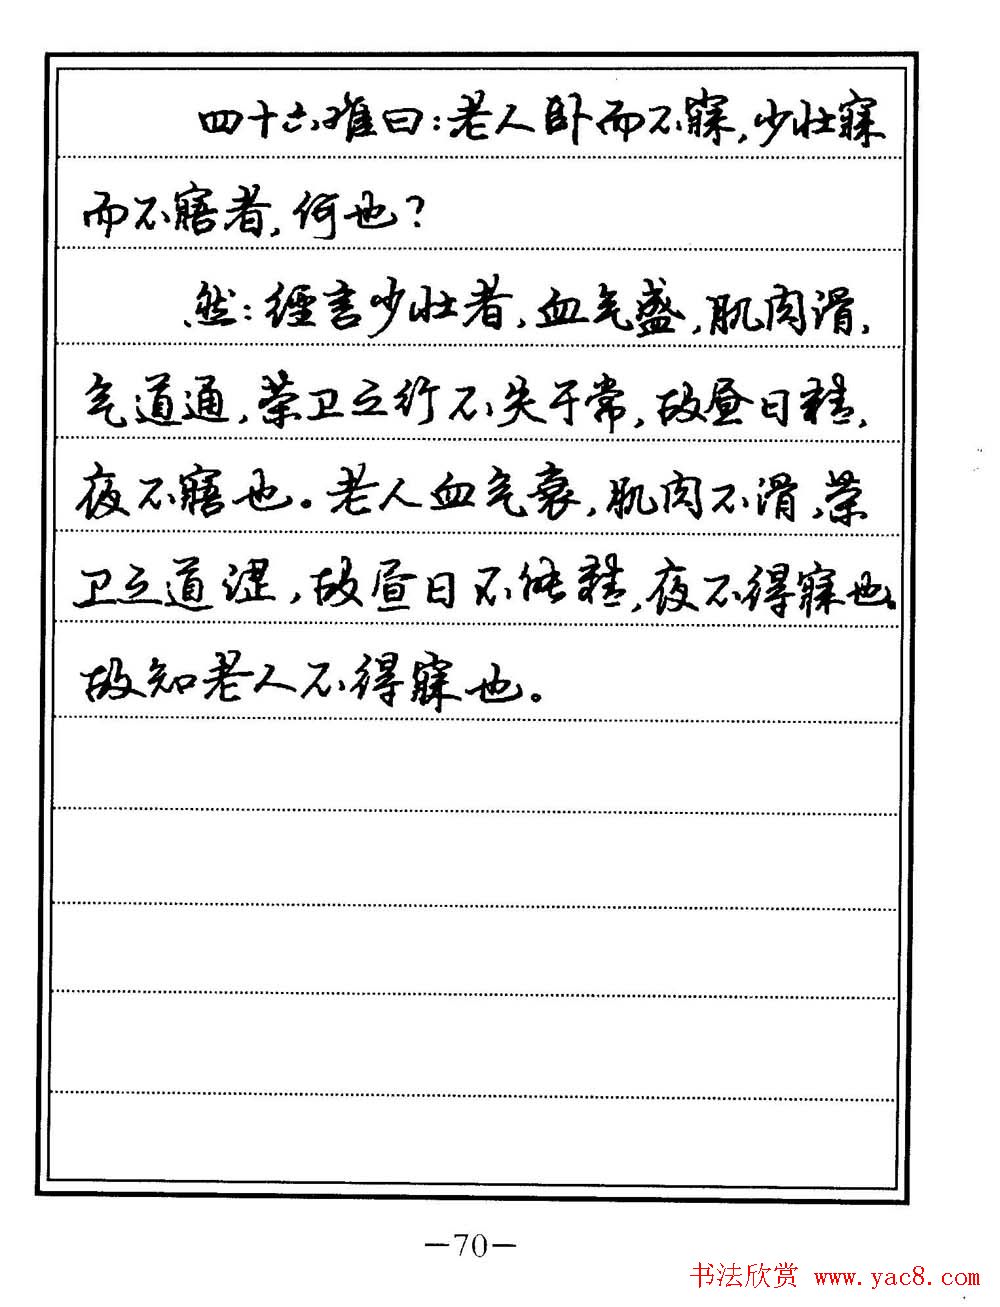 四十六难曰：老人卧而不寐，少壮寐
而不寤者，何也？
然：经言少壮者，血气盛，肌肉滑，
气道通，荣卫之行不失于常，故昼日精，
夜不寤也。老人血气衰，肌肉不滑，荣
卫之道涩，故昼日不能精，夜不得寐也。
故知老人不得寐也。
—70—
书法欣赏 www.yac8.com